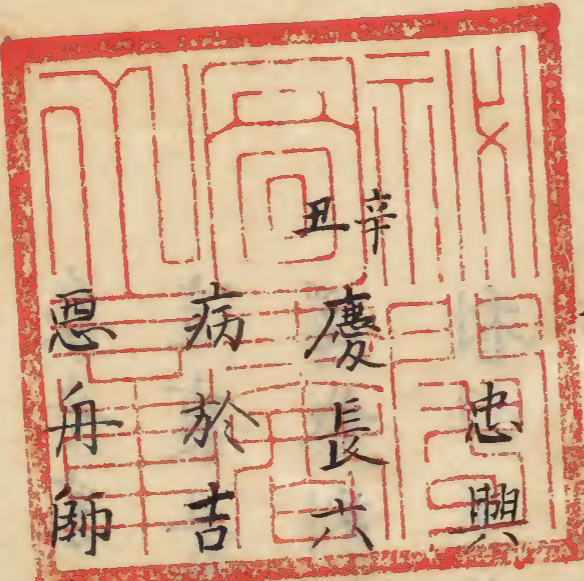 忠興
辛丑
慶長六
病於吉
悪舟師